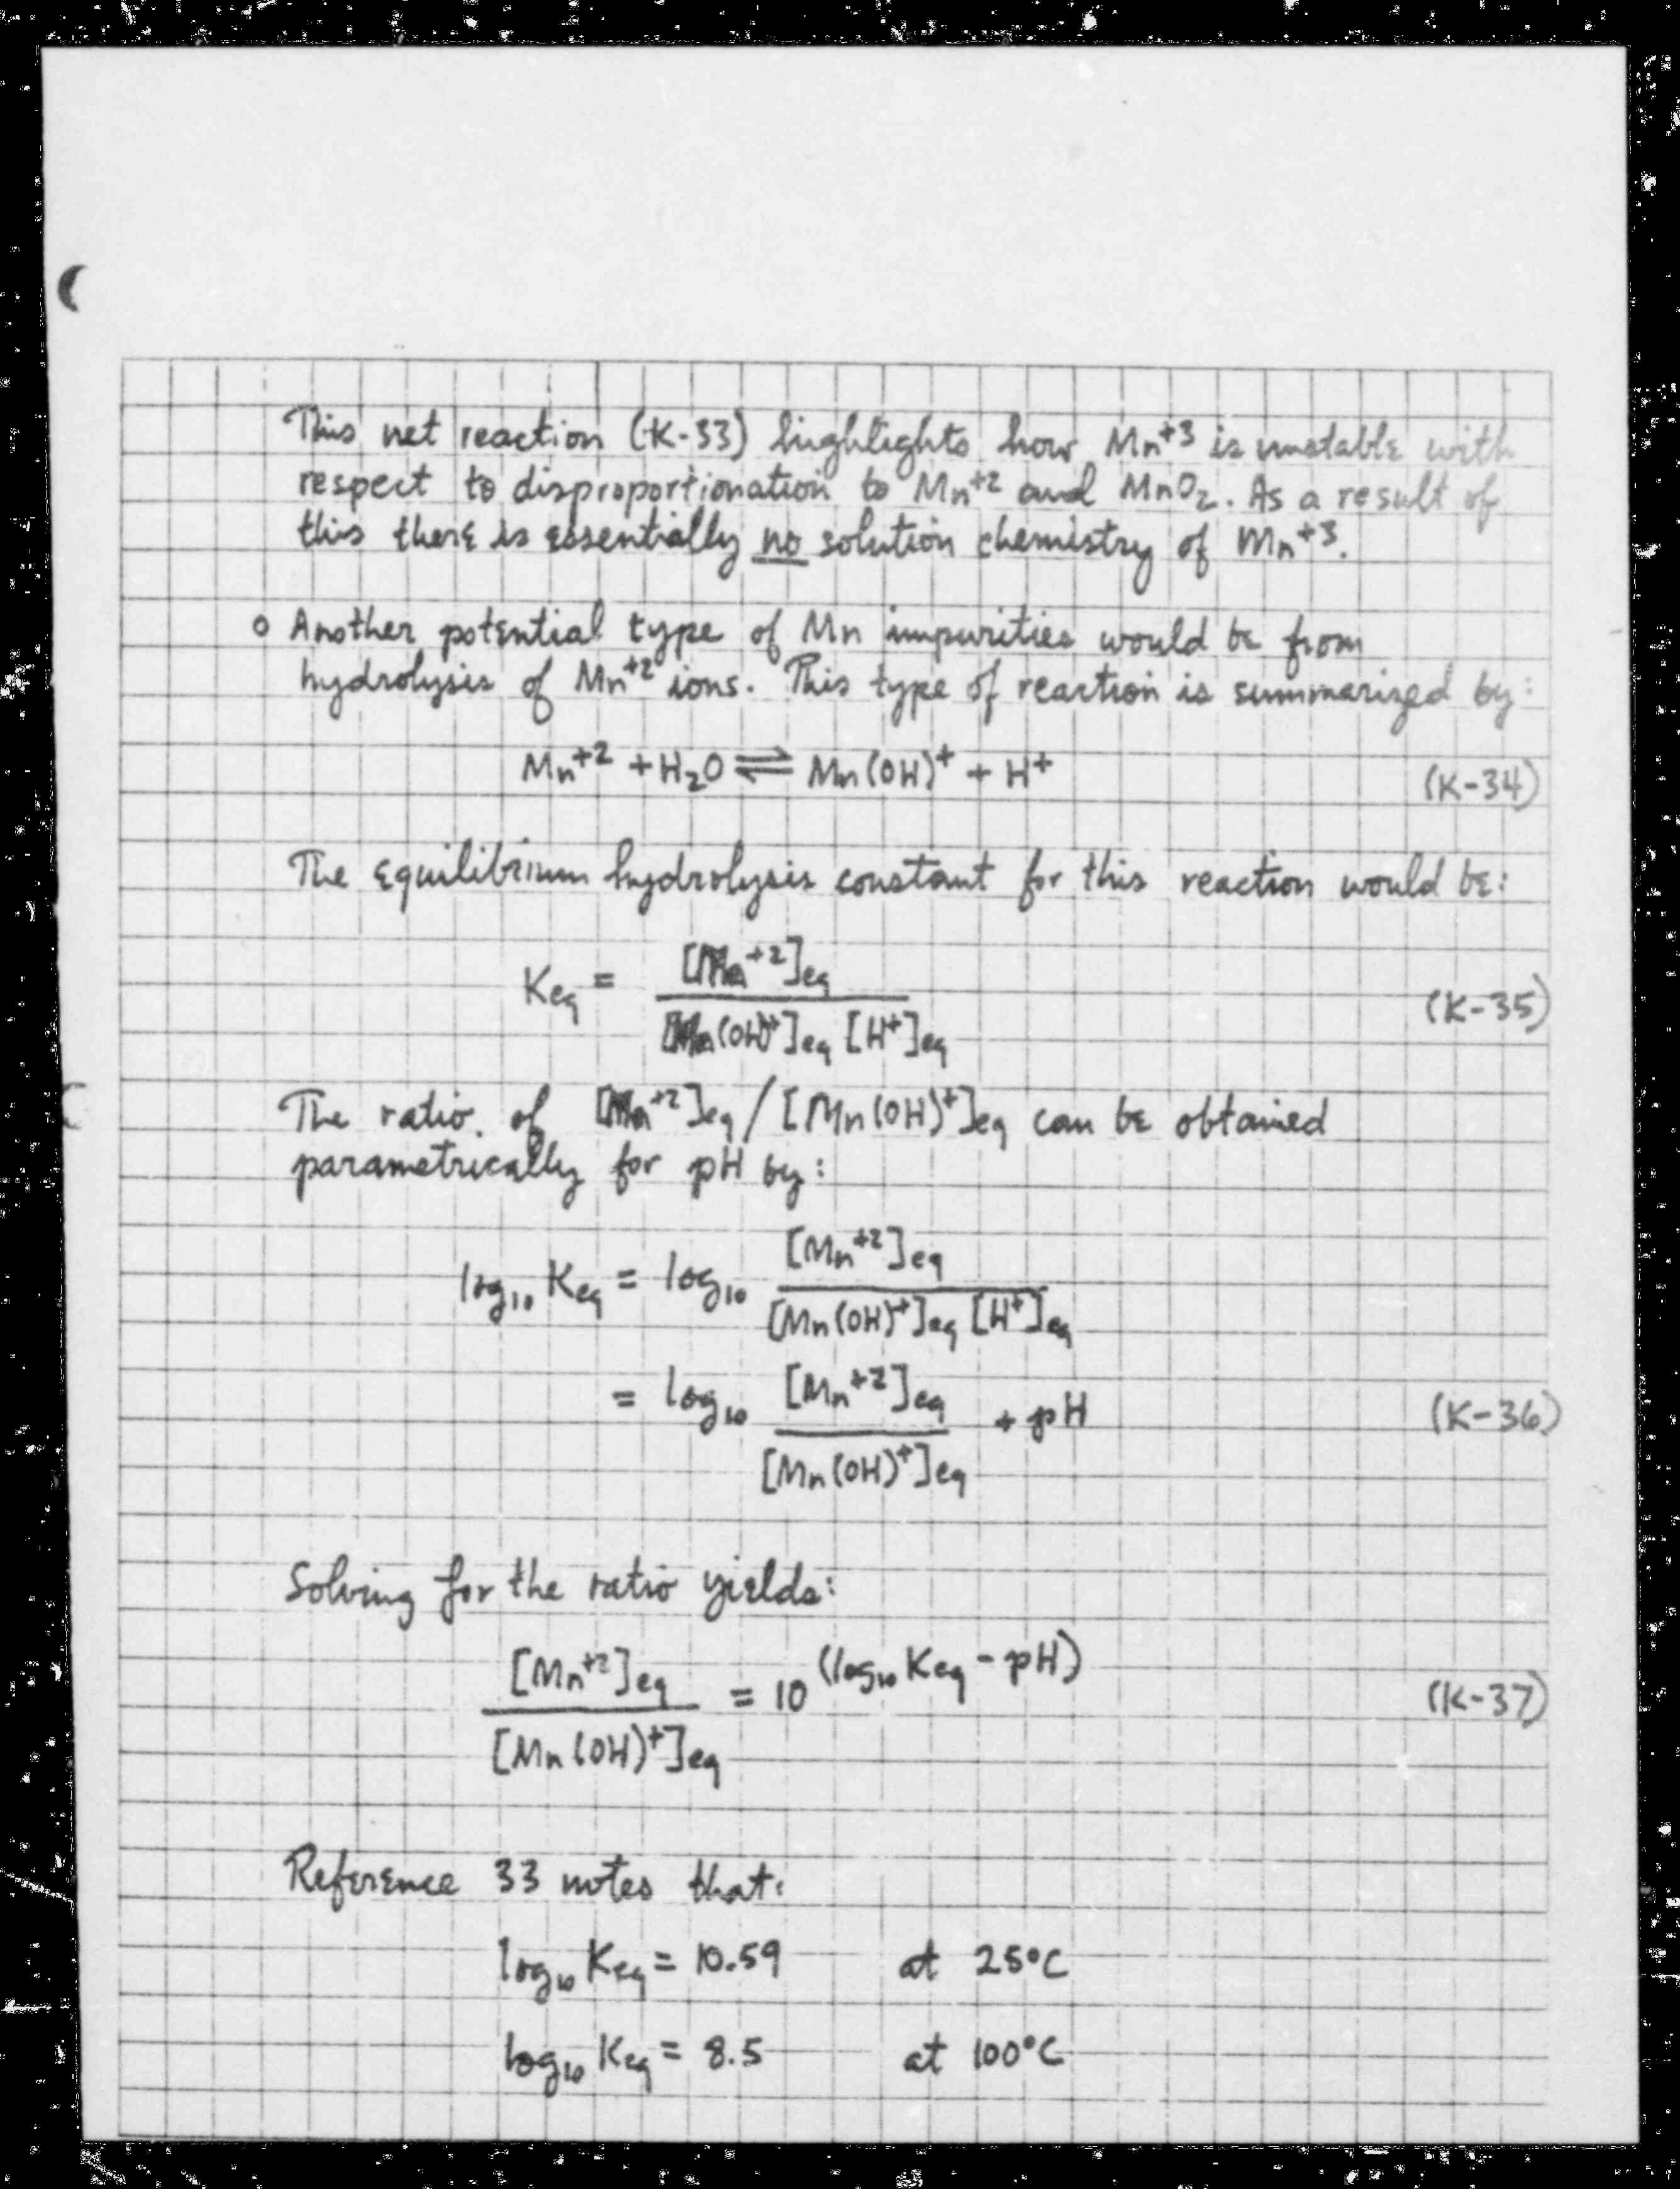 This net reaction (K-33) highlights how Mn⁺³ is unstable with
respect to disproportionation to Mn⁺² and MnO₂. As a result of
this there is essentially no solution chemistry of Mn⁺³.
o Another potential type of Mn impurities would be from
hydrolysis of Mn⁺² ions. This type of reaction is summarized by:
Mn⁺² + H₂O ⇌ Mn(OH)⁺ + H⁺ (K-34)
The equilibrium hydrolysis constant for this reaction would be:
Keq = [Mn⁺²]eq / [Mn(OH)⁺]eq [H⁺]eq (K-35)
The ratio of [Mn⁺²]eq / [Mn(OH)⁺]eq can be obtained
parametrically for pH by:
log₁₀ Keq = log₁₀ [Mn⁺²]eq / [Mn(OH)⁺]eq [H⁺]eq
= log₁₀ [Mn⁺²]eq / [Mn(OH)⁺]eq + pH (K-36)
Solving for the ratio yields:
[Mn⁺²]eq / [Mn(OH)⁺]eq = 10^(log₁₀ Keq - pH) (K-37)
Reference 33 notes that:
log₁₀ Keq = 10.59 at 25°C
log₁₀ Keq = 8.5 at 100°C